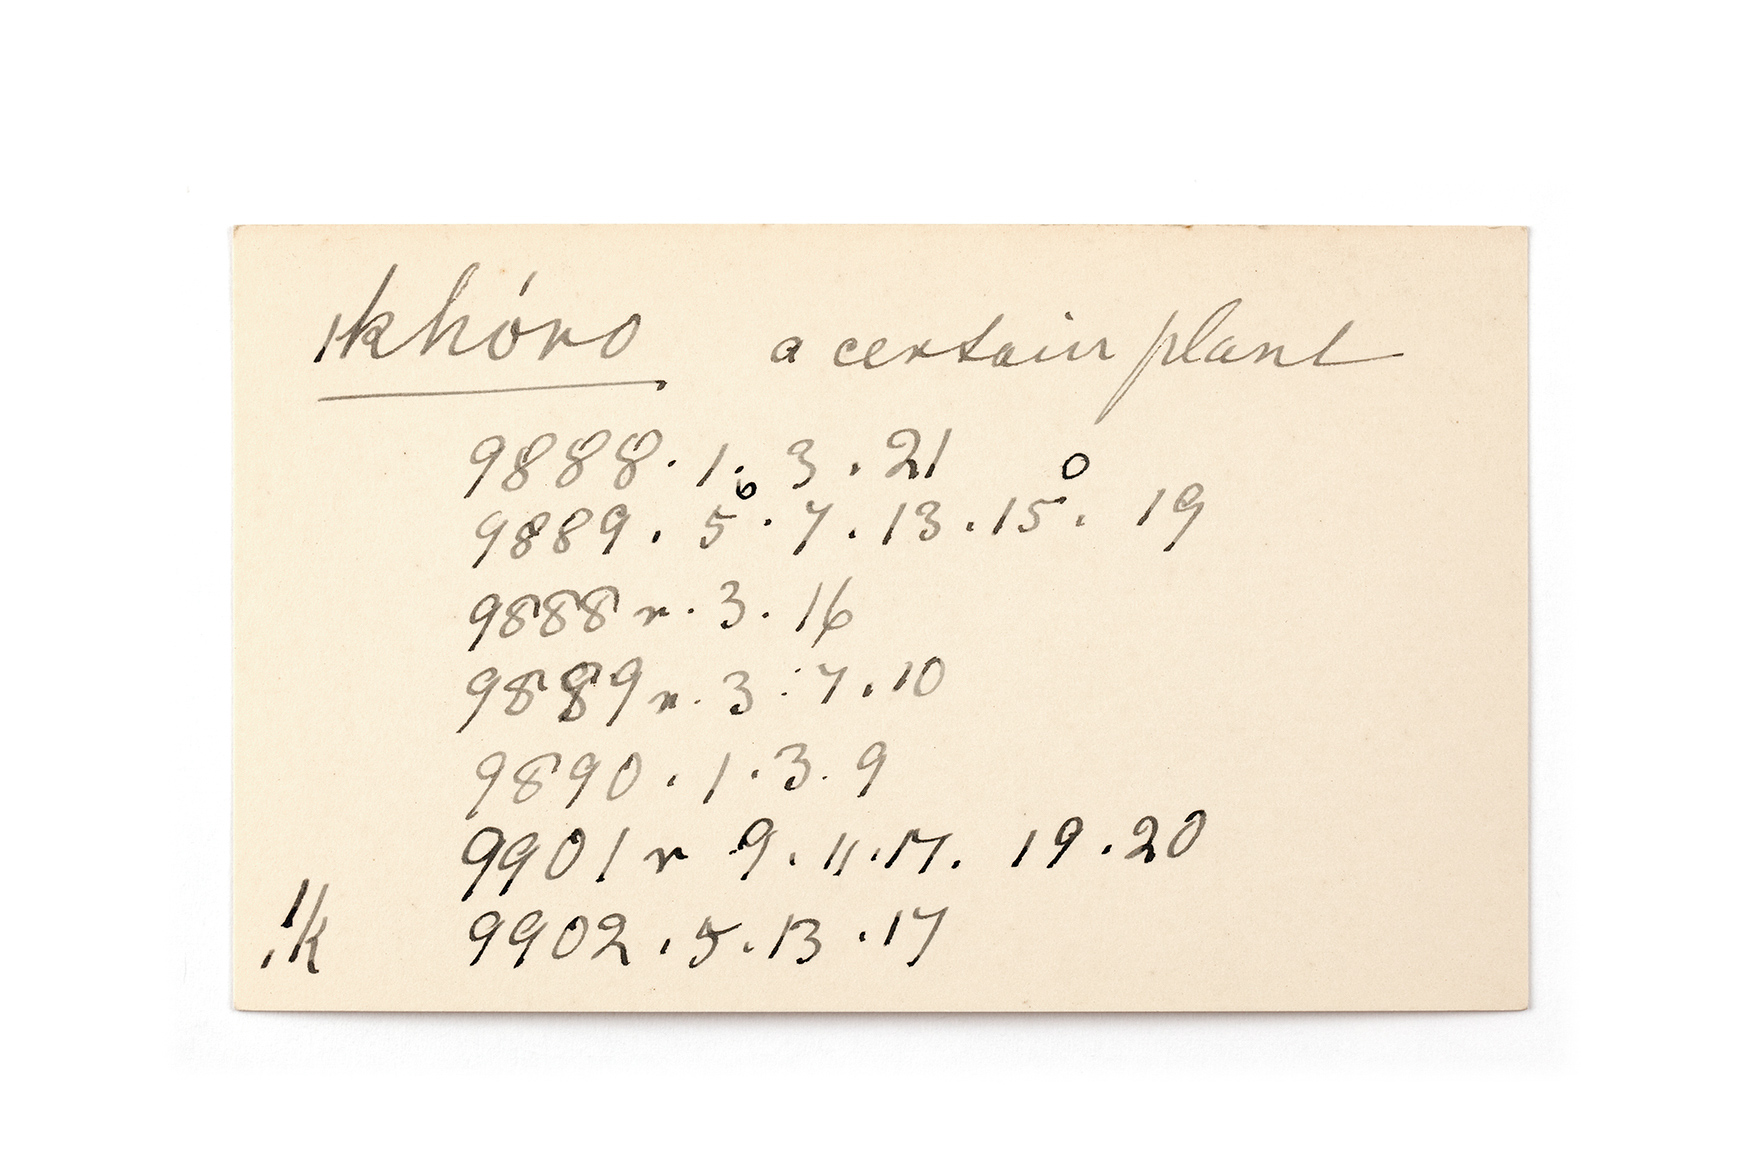 ǀkhóro a certain plant
9888 . 1 . 3 . 21
9889 . 5⁶ . 7 . 13 . 15⁰ . 19
9888 r . 3 . 16
9889 r . 3 . 7 . 10
9890 . 1 . 3 . 9
9901 r 9 . 11 . 17 . 19 . 20
9902 . 5 . 13 . 17
ǀk